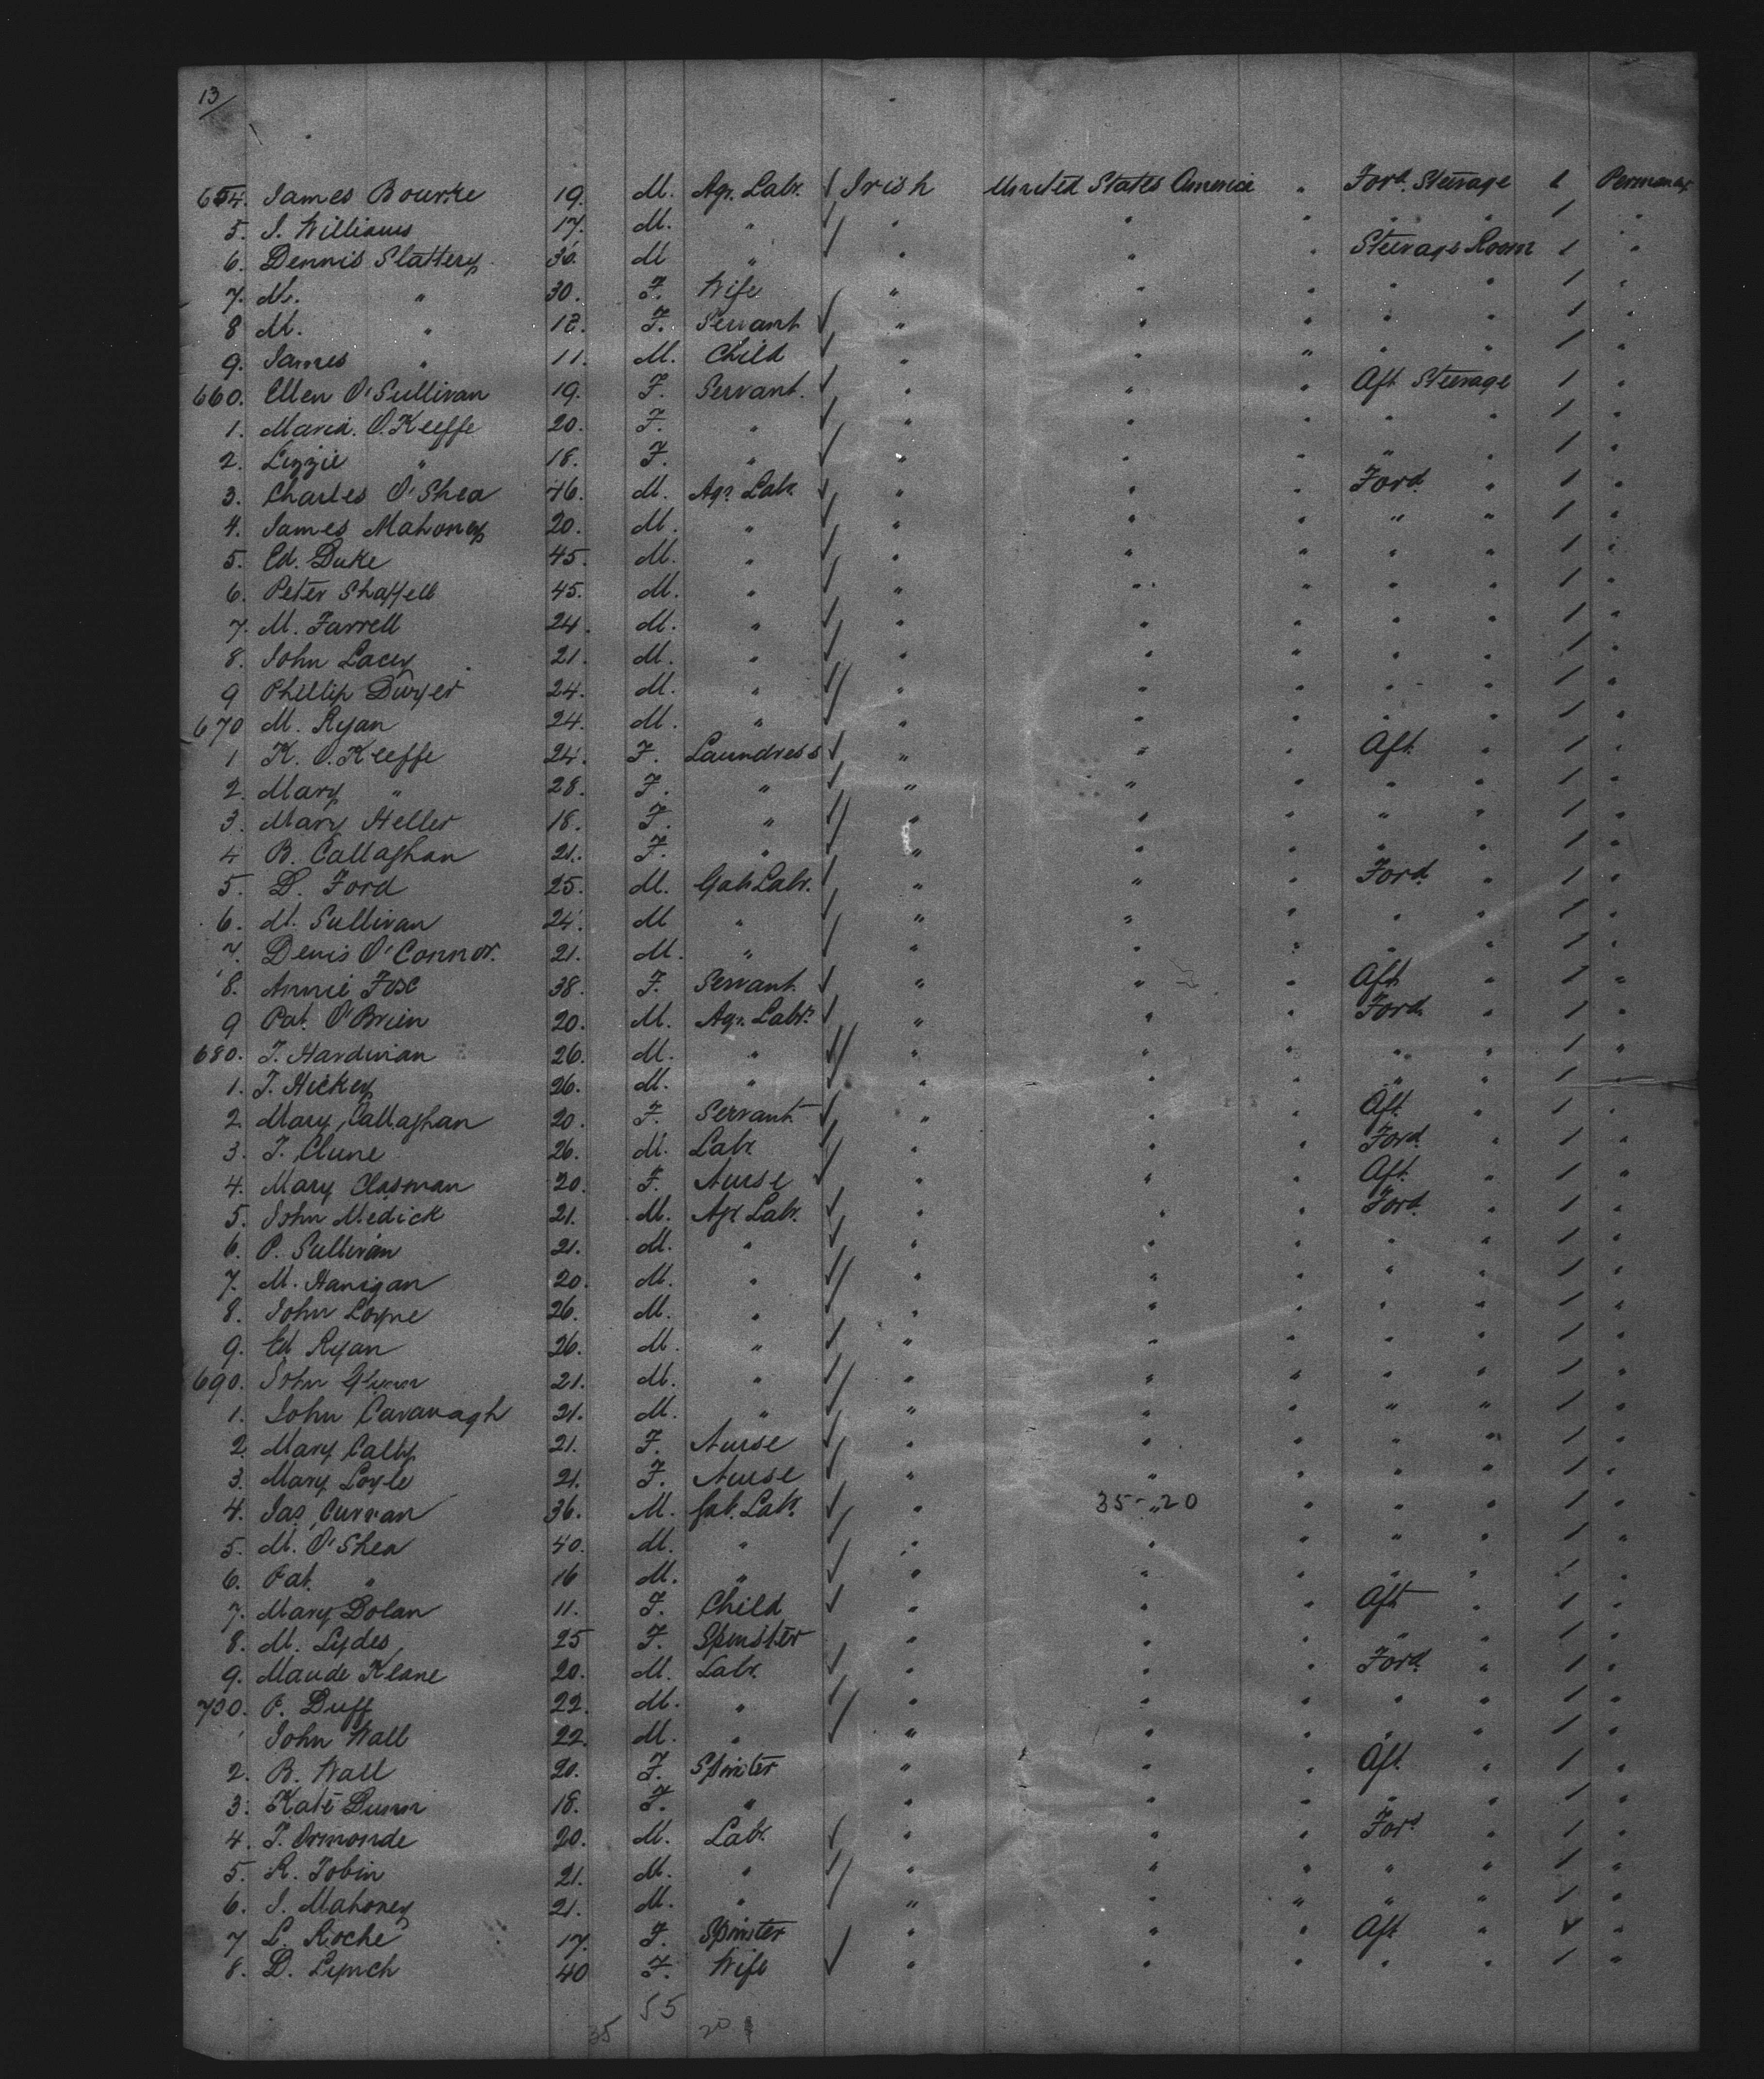 13/
654. James Bourke 19. M. Agr. Labr. ✓ Irish United States America " Ford. Steerage 1 Permanency
5. J. Williams 17. M. " ✓ " " " " " 1 "
6. Dennis Slattery 36. M " ✓ " " " Steerage Room 1 "
7. M. " 30. F. Wife " " " " " 1 "
8 M. " 12. F. Servant ✓ " " " " " 1 "
9. James " 11. M. Child ✓ " " " " " 1 "
660. Ellen O'Sullivan 19. F. Servant. ✓ " " " Aft Steerage 1 "
1. Maria. O.Keeffe 20. F. " ✓ " " " " " 1 "
2. Lizzie " 18. F. " ✓ " " " " " 1 "
3. Charles O'Shea 46. M. Agr. Labr. ✓ " " " Ford. " 1 "
4. James Mahoney 20. M. " ✓ " " " " " 1 "
5. Ed. Duke 45 M. " ✓ " " " " " 1 "
6. Peter 45. M. " ✓ " " " " " 1 "
7. M. Farrell 24. M. " ✓ " " " " " 1 "
8. John Lacey 21. M. " ✓ " " " " " 1 "
9 Phillip Dwyer 24. M. " ✓ " " " " " 1 "
670 M. Ryan 24. M. " ✓ " " " " " 1 "
1 K. O.Keeffe 24. F. Laundress ✓ " " " Aft. " 1 "
2. Mary " 28. F. " ✓ " " " " " 1 "
3. Mary Heller 18. F. " ✓ " " " " " 1 "
4 B. Callaghan 21. F. " ✓ " " " " " 1 "
5. D. Ford 25. M. Labr. ✓ " " " Ford. " 1 "
6. M. Sullivan 24. M " ✓ " " " " " 1 "
7. Denis O'Connor. 21. M. " ✓ " " " " " 1 "
8. Annie Fox 38. F. Servant. ✓ " " " Aft " 1 "
9 Pat. O'Brien 20. M. Agr. Labr. ✓ " " " Ford. " 1 "
680. T. Hardiman 26. M. " ✓ " " " " " 1 "
1. T. Hickey 26. M. " ✓ " " " " " 1 "
2. Mary Callaghan 20. F. Servant ✓ " " " Aft. " 1 "
3. T. Clune 26. M. Labr. ✓ " " " Ford. " 1 "
4. Mary Clasman 20. F. Nurse ✓ " " " Aft. " 1 "
5. John Medick 21. M. Agr Labr. ✓ " " " Ford. " 1 "
6. P. Sullivan 21. M. " ✓ " " " " " 1 "
7. M. Hanigan 20. M. " ✓ " " " " " 1 "
8. John Loyne 26. M. " ✓ " " " " " 1 "
9. Ed Ryan 26. M. " ✓ " " " " " 1 "
690. John Glynn 21. M. " ✓ " " " " " 1 "
1. John Cavanagh 21. M. " ✓ " " " " " 1 "
2. Mary 21. F. Nurse ✓ " " " " " 1 "
3. Mary Loyle 21. F. Nurse ✓ " " " " " 1 "
4. Jas Curran 36. M. Labr. ✓ " 35 - " 20 " " " 1 "
5. M. O'Shea 40. M. " ✓ " " " " " 1 "
6. Pat. " 16 M. " ✓ " " " " " 1 "
7. Mary Dolan 11. F. Child ✓ " " " Aft " 1 "
8. M. Lydes 25 F. Spinster " " " " " 1 "
9. Maude Keane 20. M. Labr. ✓ " " " Ford. " 1 "
700. P. Duff 22. M. " ✓ " " " " " 1 "
1 John Wall 22. M. " ✓ " " " " " 1 "
2. B. Wall 20. F. Spinster " " " Aft. " 1 "
3. Kate Dunn 18. F. " " " " " " 1 "
4. T. Ormonde 20. M. Labr. ✓ " " " Ford " 1 "
5. R. Tobin 21. M. " ✓ " " " " " 1 "
6. J. Mahoney 21. M. " ✓ " " " " " 1 "
7 L. Roche 17. F. Spinster " " " Aft " 1 "
8. D. Lynch 40 F. Wife ✓ " " " " " 1 "
55
35 20